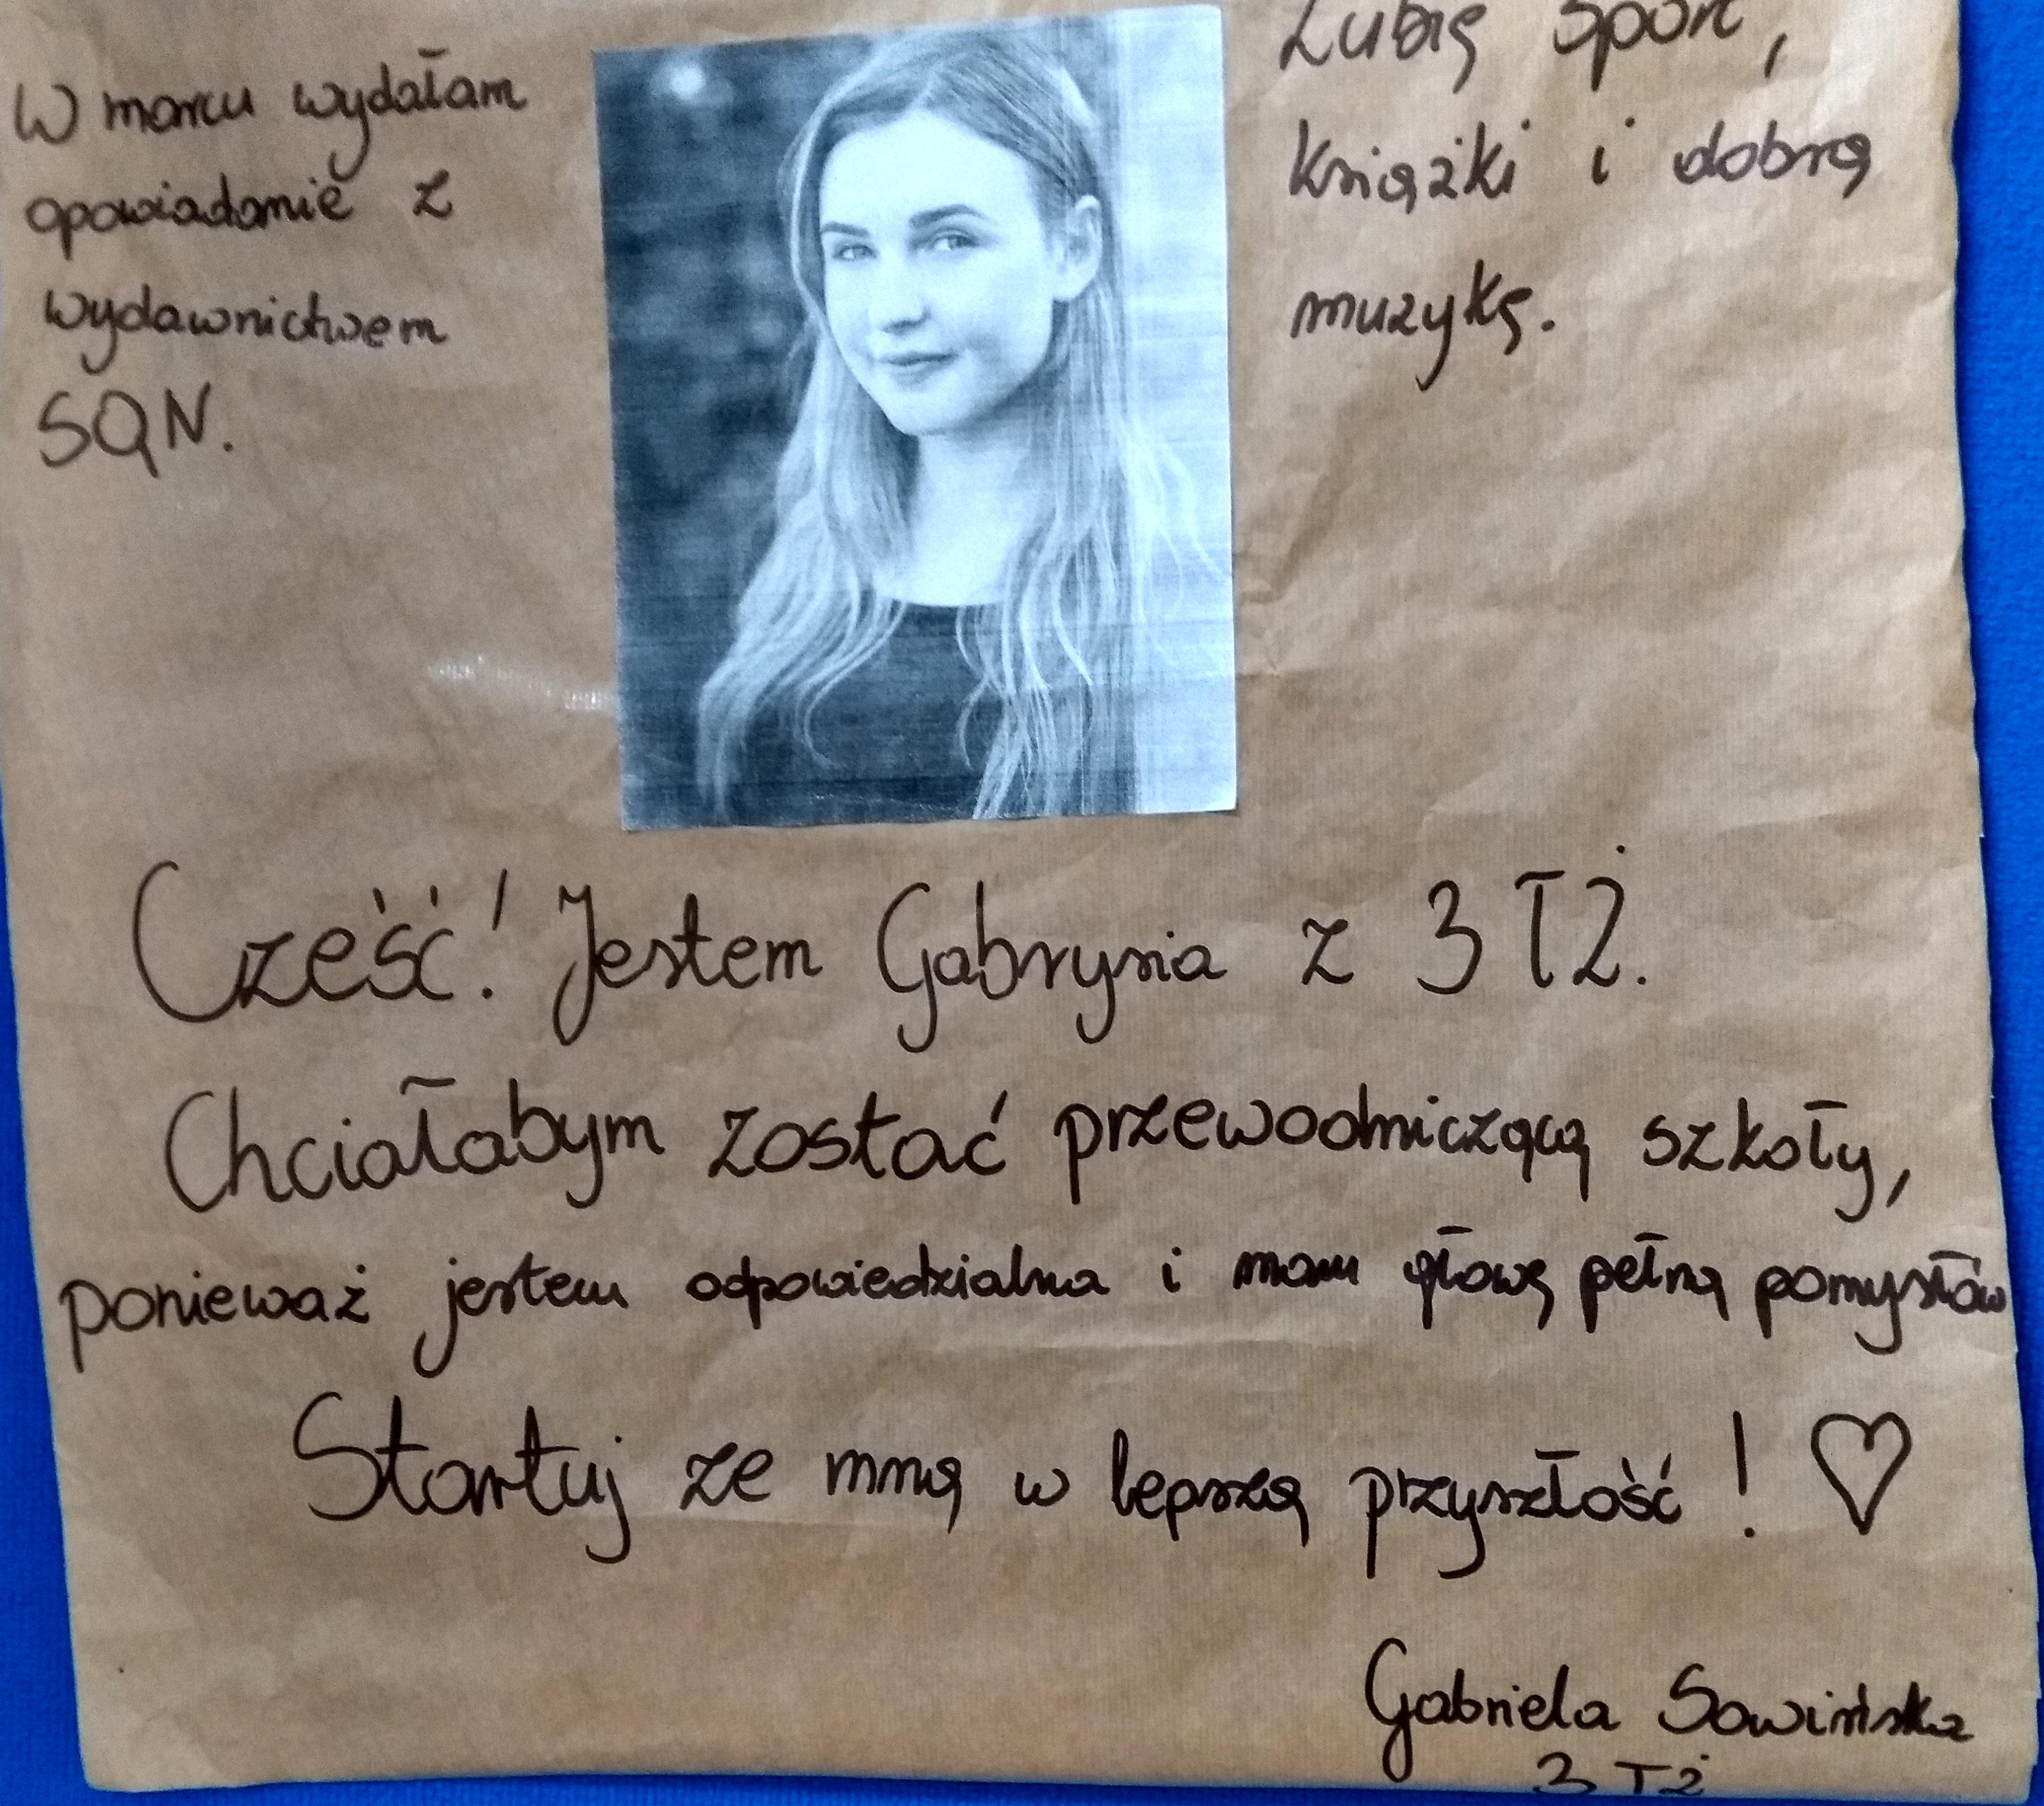 W marcu wydałam
opowiadanie z
wydawnictwem
SQN.
Lubię sport,
książki i dobrą
muzykę.
Cześć! Jestem Gabrysia z 3 TŻ.
Chciałabym zostać przewodniczącą szkoły,
ponieważ jestem odpowiedzialna i mam głowę pełną pomysłów
Startuj ze mną w lepszą przyszłość! ♡
Gabriela Sowińska
3 TŻ